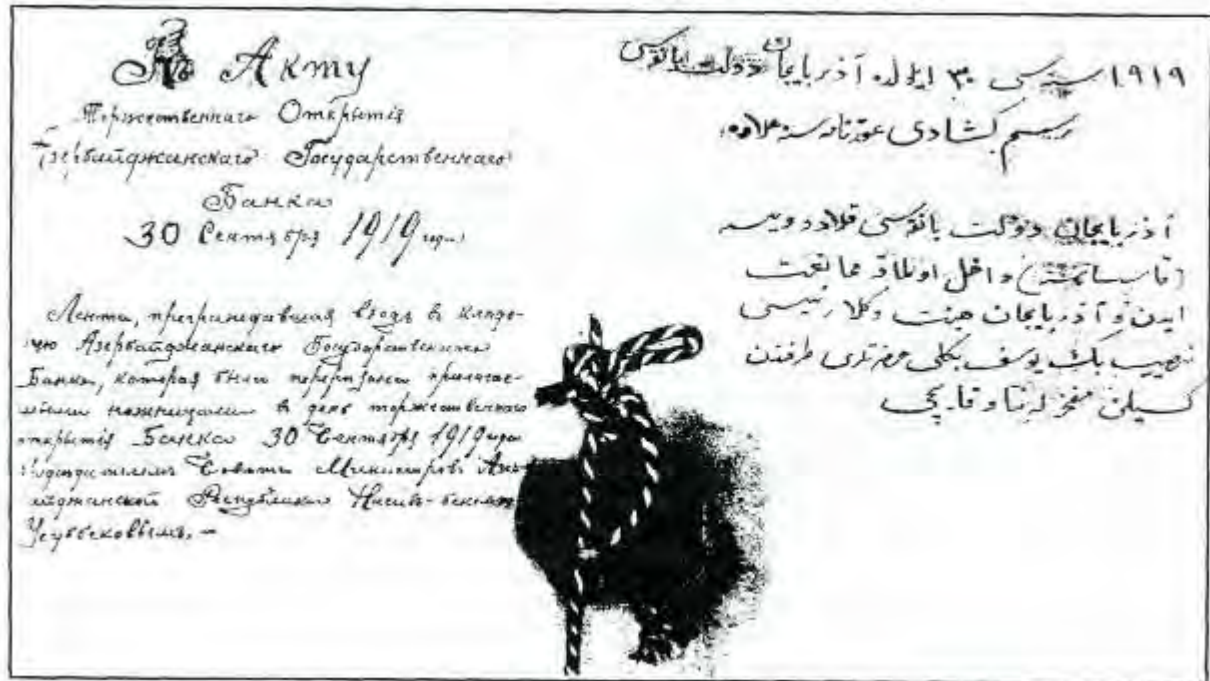 К Акту
Торжественнаго Открытія
Азербайджанскаго Государственнаго
Банка
30 Сентября 1919 года
Лента, преграждавшая входъ въ кладо-
вую Азербайджанскаго Государственнаго
Банка, которая была перерѣзана прилагае-
мыми ножницами въ день торжественнаго
открытія Банка 30 Сентября 1919 года
Совѣта Министровъ
Республики Насибъ-бекомъ
Усуббековымъ.—
۱۹۱۹ سنه‌سی ۳۰ ایلول آذربایجان دولت بانقوسی
رسم کشادی
آذربایجان دولت بانقوسی
داخل اولماقه ممانعت
ایدن و آذربایجان هیئت وکلا رئیسی
نصیب بك یوسف بکلی حضرتلری طرفندن
کسیلن